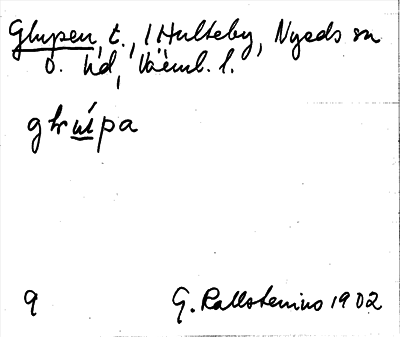 Glupen, t., i Hulteby, Nyeds sn
ö. hd, Värml. l.
q
G. Kallstenius 1902